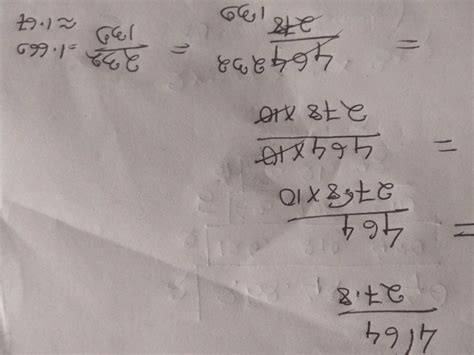 4164
27.8
= 464
278×10
= 464×10
278×10
= 464 232 = 232 = 1.669
278 139 139 ≈ 1.67